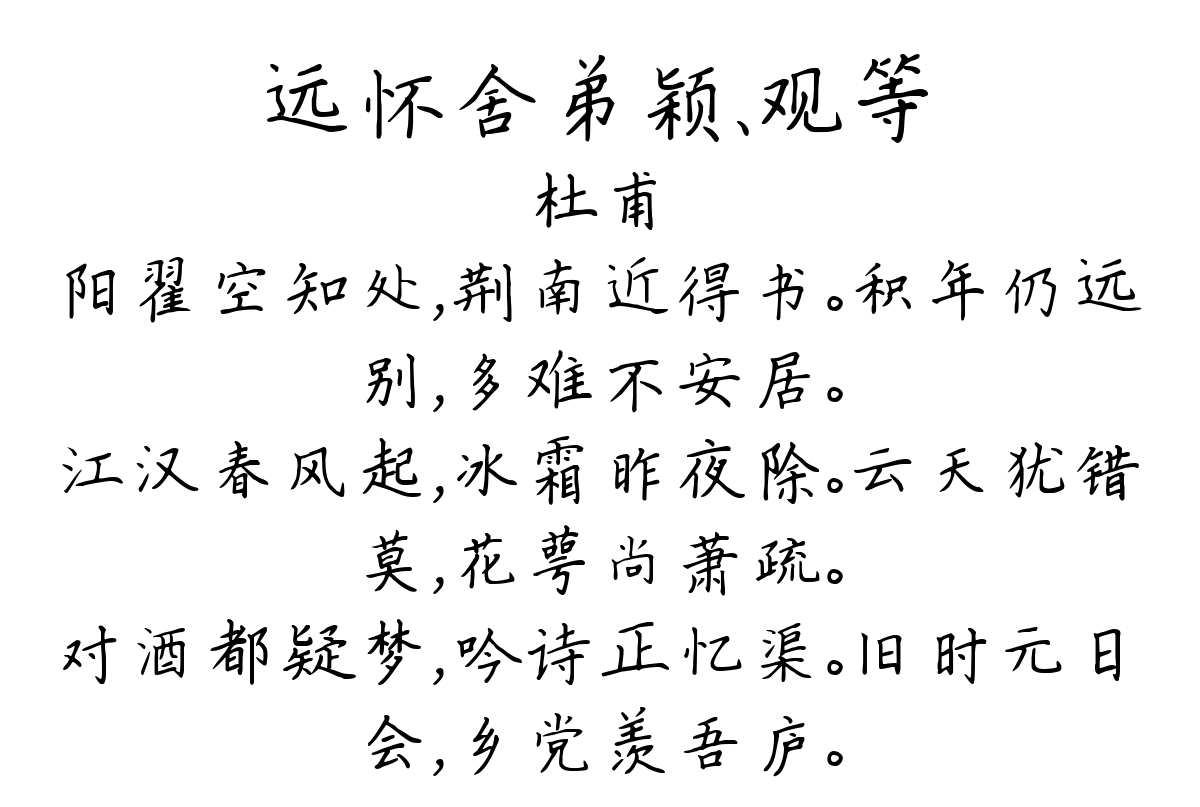 远怀舍弟颖、观等
杜甫
阳翟空知处,荆南近得书。积年仍远
别,多难不安居。
江汉春风起,冰霜昨夜除。云天犹错
莫,花萼尚萧疏。
对酒都疑梦,吟诗正忆渠。旧时元日
会,乡党羡吾庐。